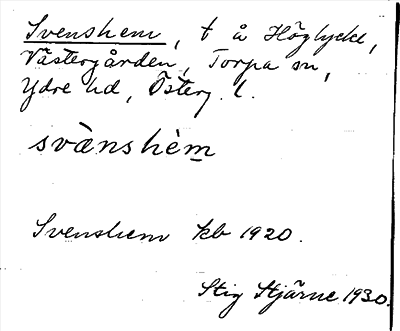 Svenshem, t å Höglycke,
Västergården, Torpa sn,
Ydre hd, Österg. l.
svànshèm
Svenshem kb 1920.
Stig Stjärne 1930.